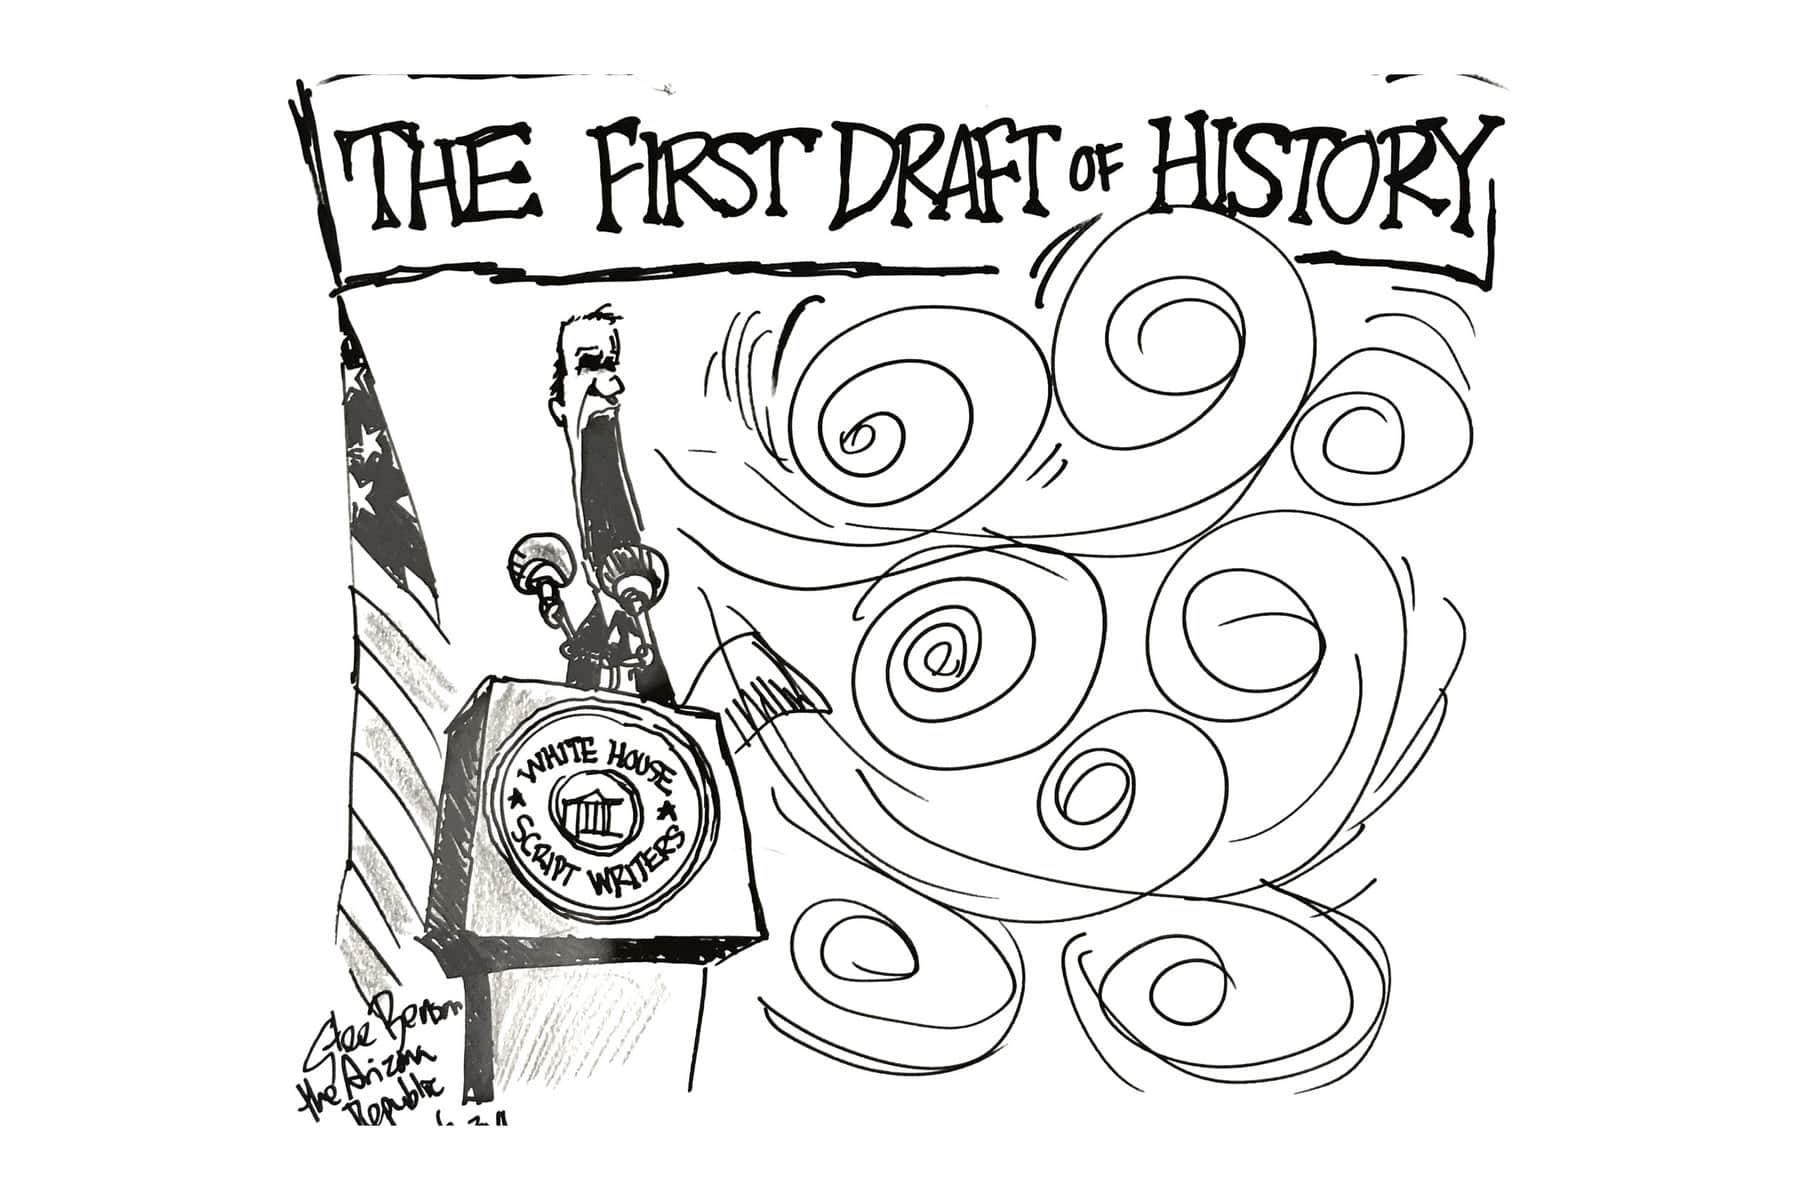 THE FIRST DRAFT OF HISTORY
WHITE HOUSE
SCRIPT WRITERS
Benson
the Arizona
Republic